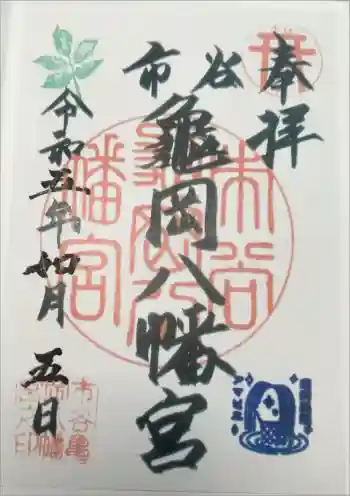 奉拝
市谷
亀岡八幡宮
令和五年如月五日
市谷
亀岡八
幡宮
市谷亀
岡八幡
宮之印